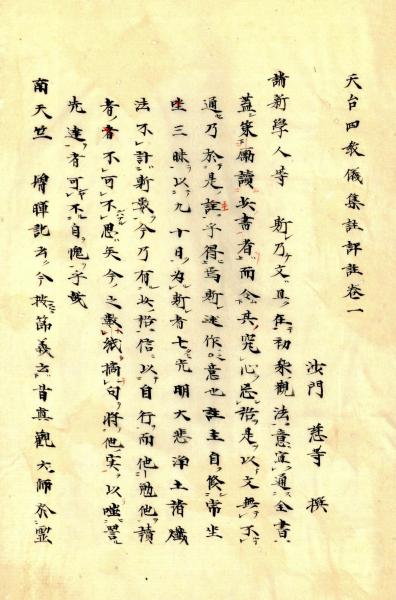 天台四教儀集註詳註卷一
沙門 慈等 撰
諸新學人等 斯乃文具在初衆觀法意宜通全書
蓋策勵讀此書者而令其究心忘詒是以文無不
通乃於是註乎得焉斯述作之意也註主自修常坐
坐三昧以九十日為斯者七光明大悲淨土諸懺
法不計斯數今乃有此詒信以自行而他勉他讀
者者不可不思矣今之裁摘句將他実以嗤詈
先達者可不自愧乎哉
南天竺 增暉記云今按節義云昔真觀大師於靈